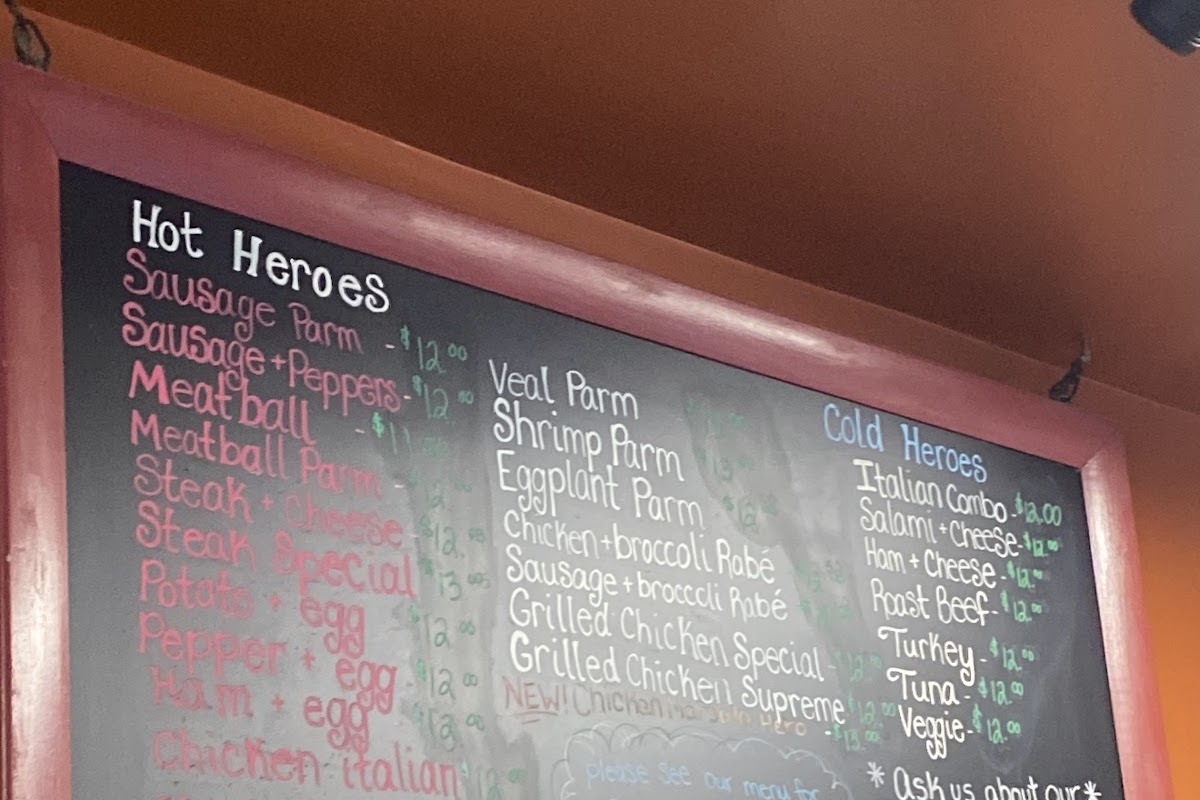 Hot Heroes
Sausage Parm - $12.00
Sausage + Peppers - $12.00
Meatball - $11.00
Meatball Parm -
Steak + Cheese - $12.00
Steak Special $13.00
Potato + egg $12.00
Pepper + egg $12.00
Ham + egg $12.00
Chicken italian $12.00
Veal Parm
Shrimp Parm
Eggplant Parm
Chicken + broccoli Rabé
Sausage + broccoli Rabé
Grilled Chicken Special - $12.00
Grilled Chicken Supreme $12.00
NEW! Chicken Hero - $13.00
please see our menu for
Cold Heroes
Italian Combo - $12.00
Salami + Cheese - $12.00
Ham + Cheese - $12.00
Roast Beef - $12.00
Turkey - $12.00
Tuna - $12.00
Veggie - $12.00
* Ask us about our *